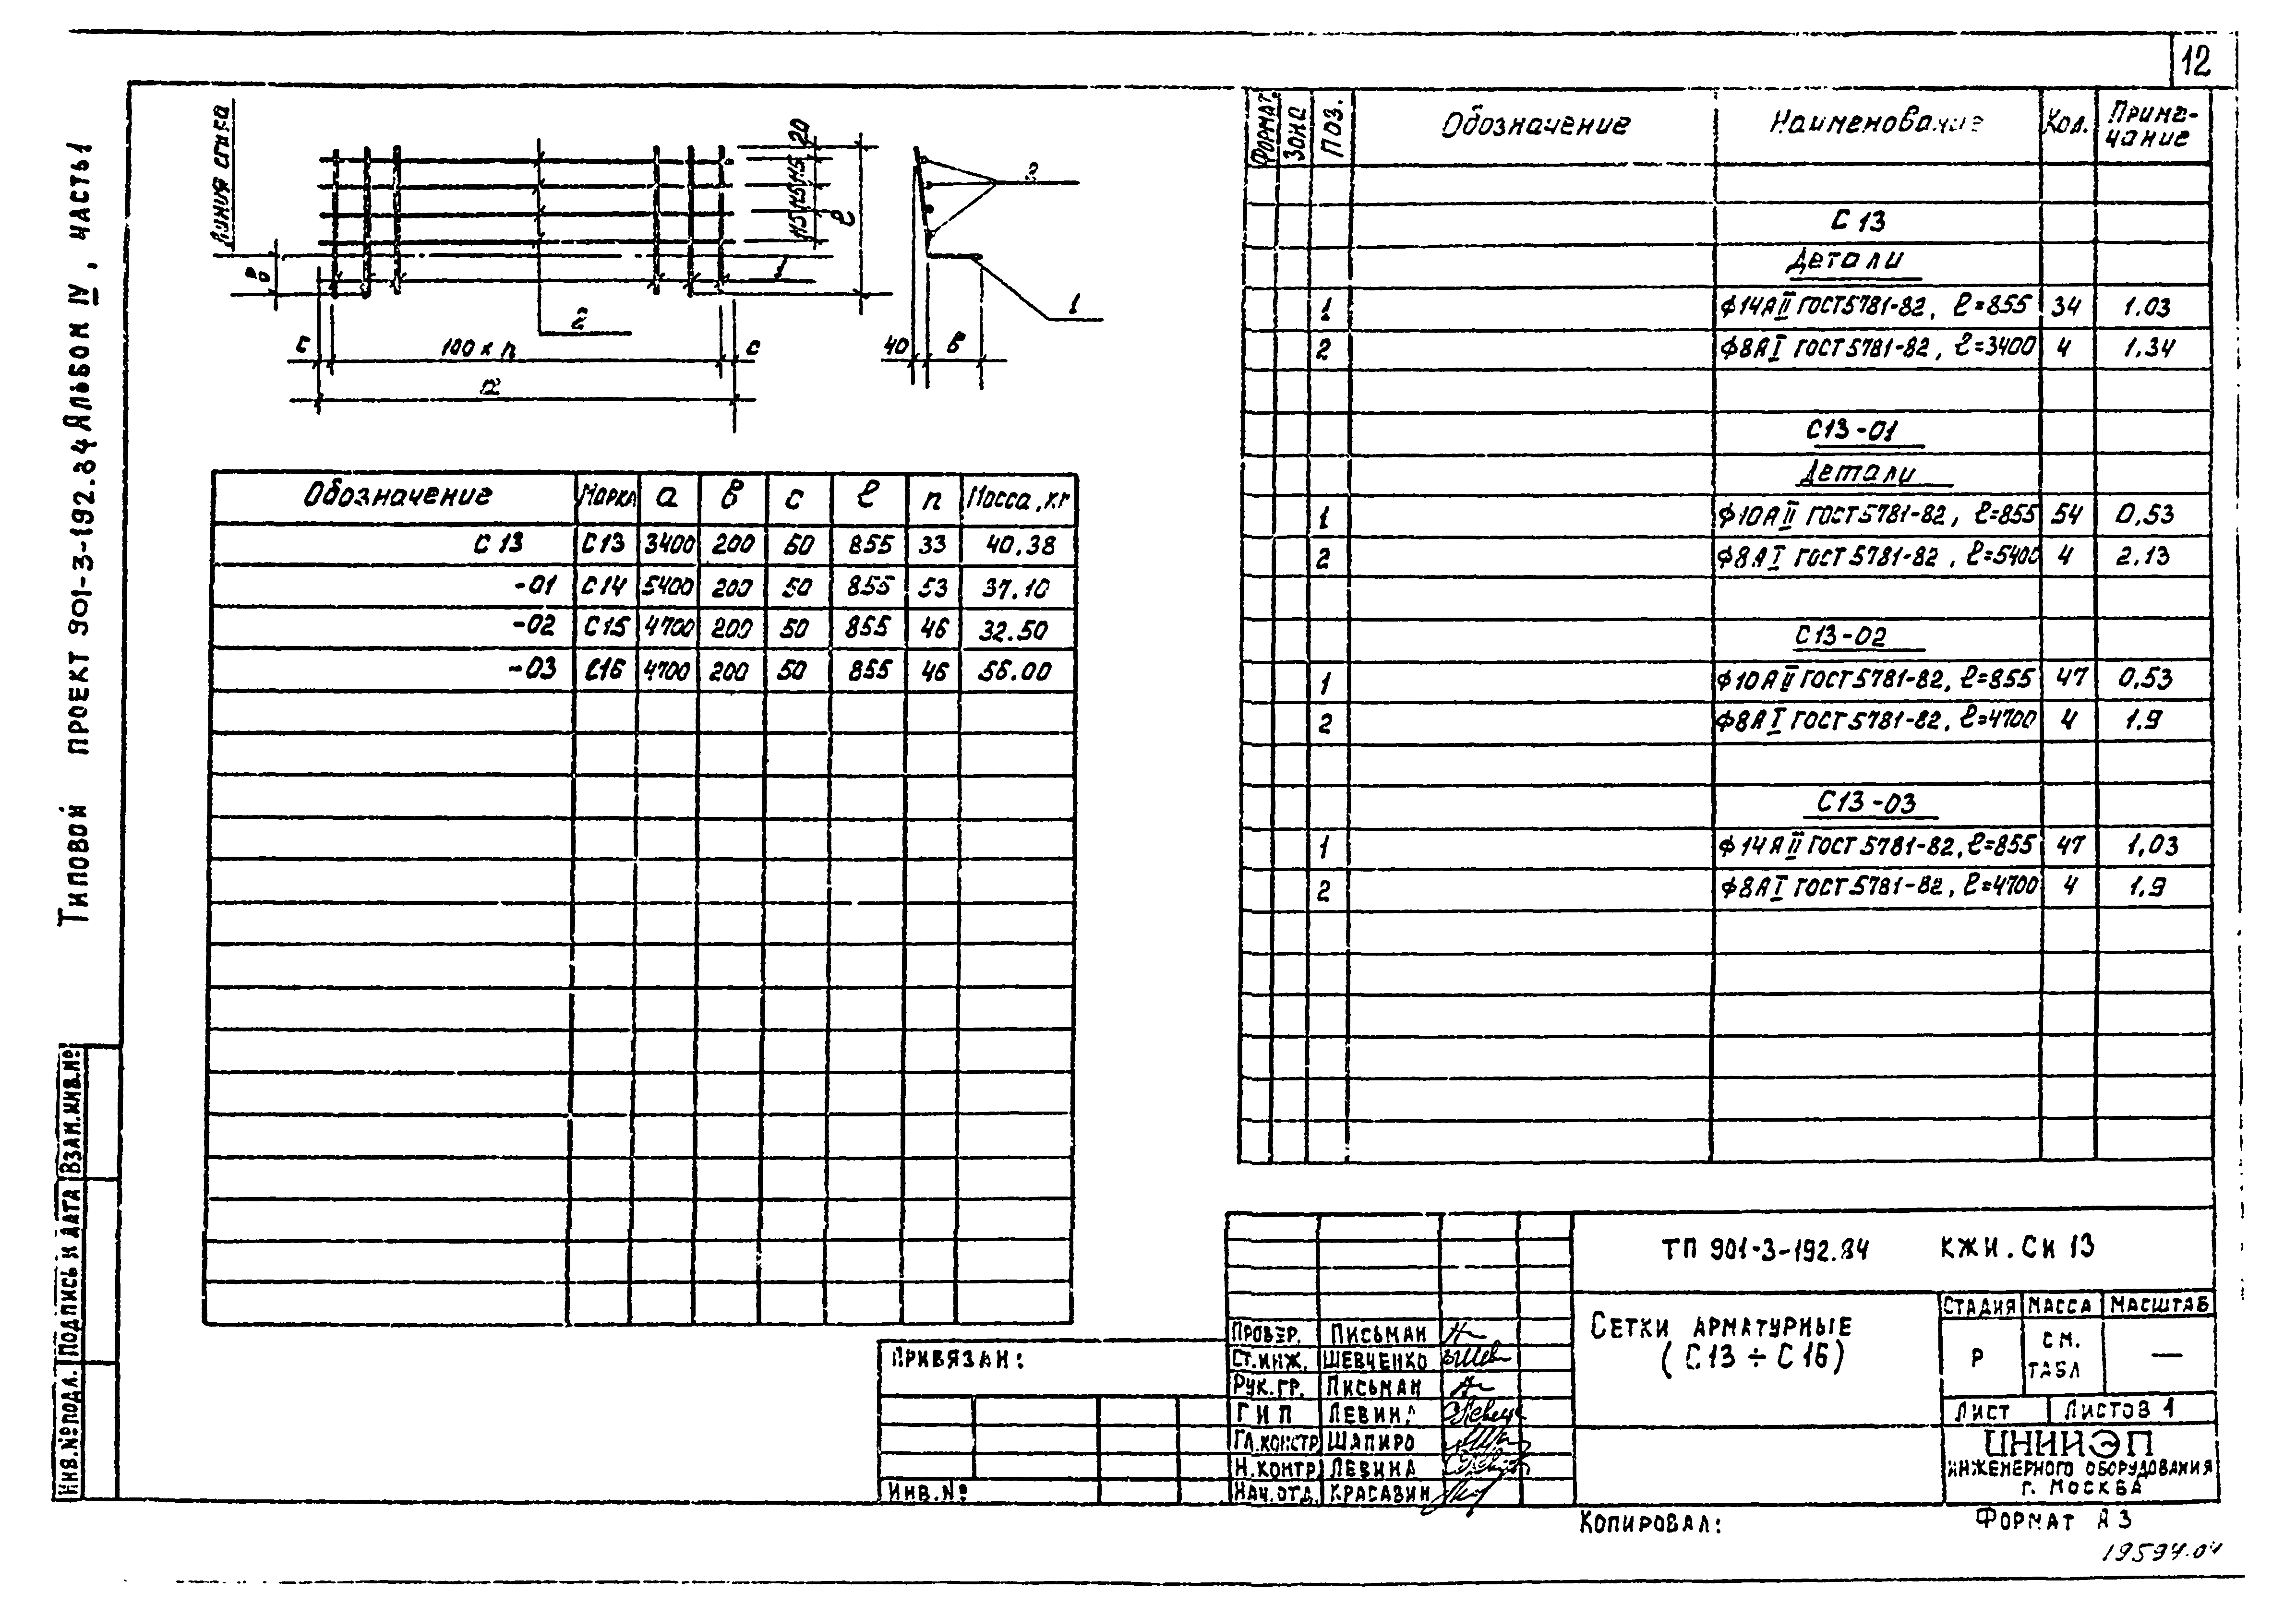 12
Типовой проект 901-3-192.84 Альбом IV, часть 1
Линия сгиба
20
115 115 115
ℓ
в
1
2
с 100 х n с
а
2
40 в
1
Обозначение Марка а в с ℓ n Масса, кг
С 13 С13 3400 200 50 855 33 40.38
-01 С14 5400 200 50 855 53 37.10
-02 С15 4700 200 50 855 46 32.50
-03 С16 4700 200 50 855 46 56.00
Формат Зона Поз. Обозначение Наименование Кол. Приме-
чание
С 13
Детали
1 ф14АII ГОСТ5781-82, ℓ=855 34 1.03
2 ф8АI ГОСТ5781-82, ℓ=3400 4 1.34
С13-01
Детали
1 ф10АII ГОСТ5781-82, ℓ=855 54 0,53
2 ф8АI ГОСТ5781-82, ℓ=5400 4 2.13
С13-02
1 ф10АII ГОСТ5781-82, ℓ=855 47 0,53
2 ф8АI ГОСТ5781-82, ℓ=4700 4 1.9
С13-03
1 ф14АII ГОСТ5781-82, ℓ=855 47 1,03
2 ф8АI ГОСТ5781-82, ℓ=4700 4 1.9
Взам.инв.№
Подпись и дата
Инв.№подл.
Привязан:
Инв.№
ТП 901-3-192.84 КЖИ.СИ 13
Провер. Письман
Ст.инж. Шевченко
Рук.гр. Письман
ГИП Левина
Гл.констр Шапиро
Н.контр Левина
Нач.отд. Красавин
Сетки арматурные
(С13÷С16)
Стадия Масса Масштаб
Р см. табл —
Лист Листов 1
ЦНИИЭП
инженерного оборудования
г. Москва
Копировал: Формат А3
19594-04